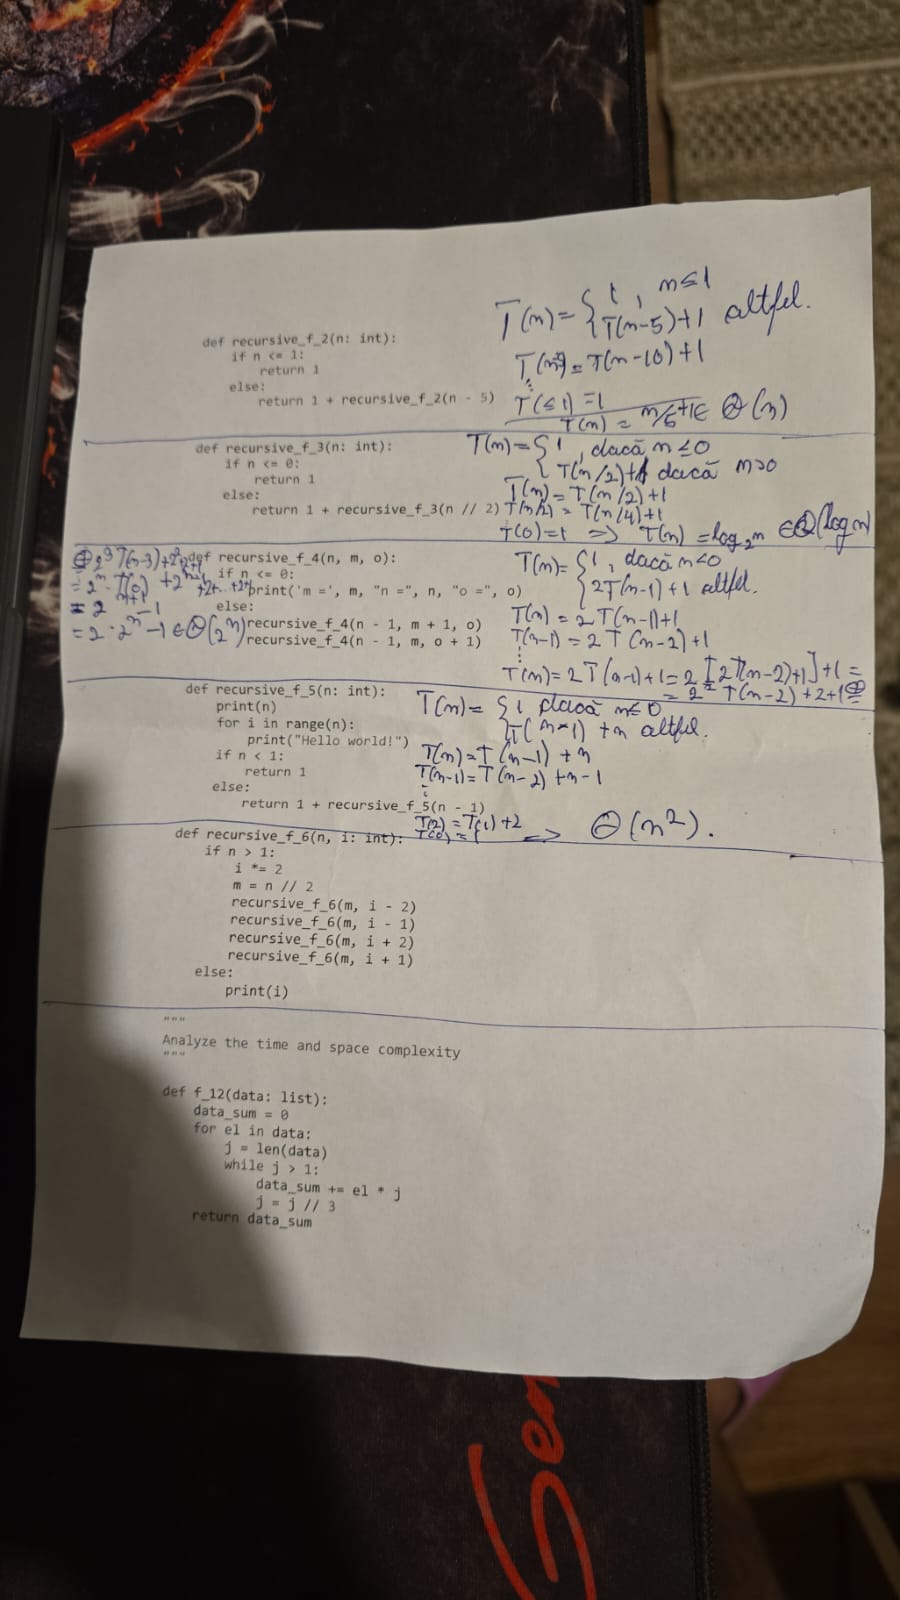 def recursive_f_2(n: int):
if n <= 1:
return 1
else:
return 1 + recursive_f_2(n - 5)
T(n) = { 1, n ≤ 1
T(n-5)+1 altfel.
= T(n-10)+1
⋮
T(≤1) = 1
T(n) = n/5+1 ∈ Θ(n)
def recursive_f_3(n: int):
if n <= 0:
return 1
else:
return 1 + recursive_f_3(n // 2)
T(n) = { 1, dacă n ≤ 0
T(n/2)+1 dacă n>0
T(n) = T(n/2)+1
T(n/2) = T(n/4)+1
T(0)=1 => T(n) = log₂n ∈ Θ(log n)
def recursive_f_4(n, m, o):
if n <= 0:
print('m =', m, "n =", n, "o =", o)
else:
recursive_f_4(n - 1, m + 1, o)
recursive_f_4(n - 1, m, o + 1)
T(n) = { 1, dacă n≤0
2T(n-1)+1 altfel.
T(n) = 2T(n-1)+1
T(n-1) = 2T(n-2)+1
⋮
T(n) = 2T(n-1)+1 = 2[2T(n-2)+1]+1 =
= 2² T(n-2)+2+1 ⊕
= 2ⁿ⁺¹-1
= 2·2ⁿ-1 ∈ Θ(2ⁿ)
def recursive_f_5(n: int):
print(n)
for i in range(n):
print("Hello world!")
if n < 1:
return 1
else:
return 1 + recursive_f_5(n - 1)
T(n) = { 1 dacă n≤0
T(n-1)+n altfel.
T(n) = T(n-1)+n
T(n-1) = T(n-2)+n-1
⋮
T(2) = T(1)+2
T(0) = 1 => Θ(n²).
def recursive_f_6(n, i: int):
if n > 1:
i *= 2
m = n // 2
recursive_f_6(m, i - 2)
recursive_f_6(m, i - 1)
recursive_f_6(m, i + 2)
recursive_f_6(m, i + 1)
else:
print(i)
"""
Analyze the time and space complexity
"""
def f_12(data: list):
data_sum = 0
for el in data:
j = len(data)
while j > 1:
data_sum += el * j
j = j // 3
return data_sum